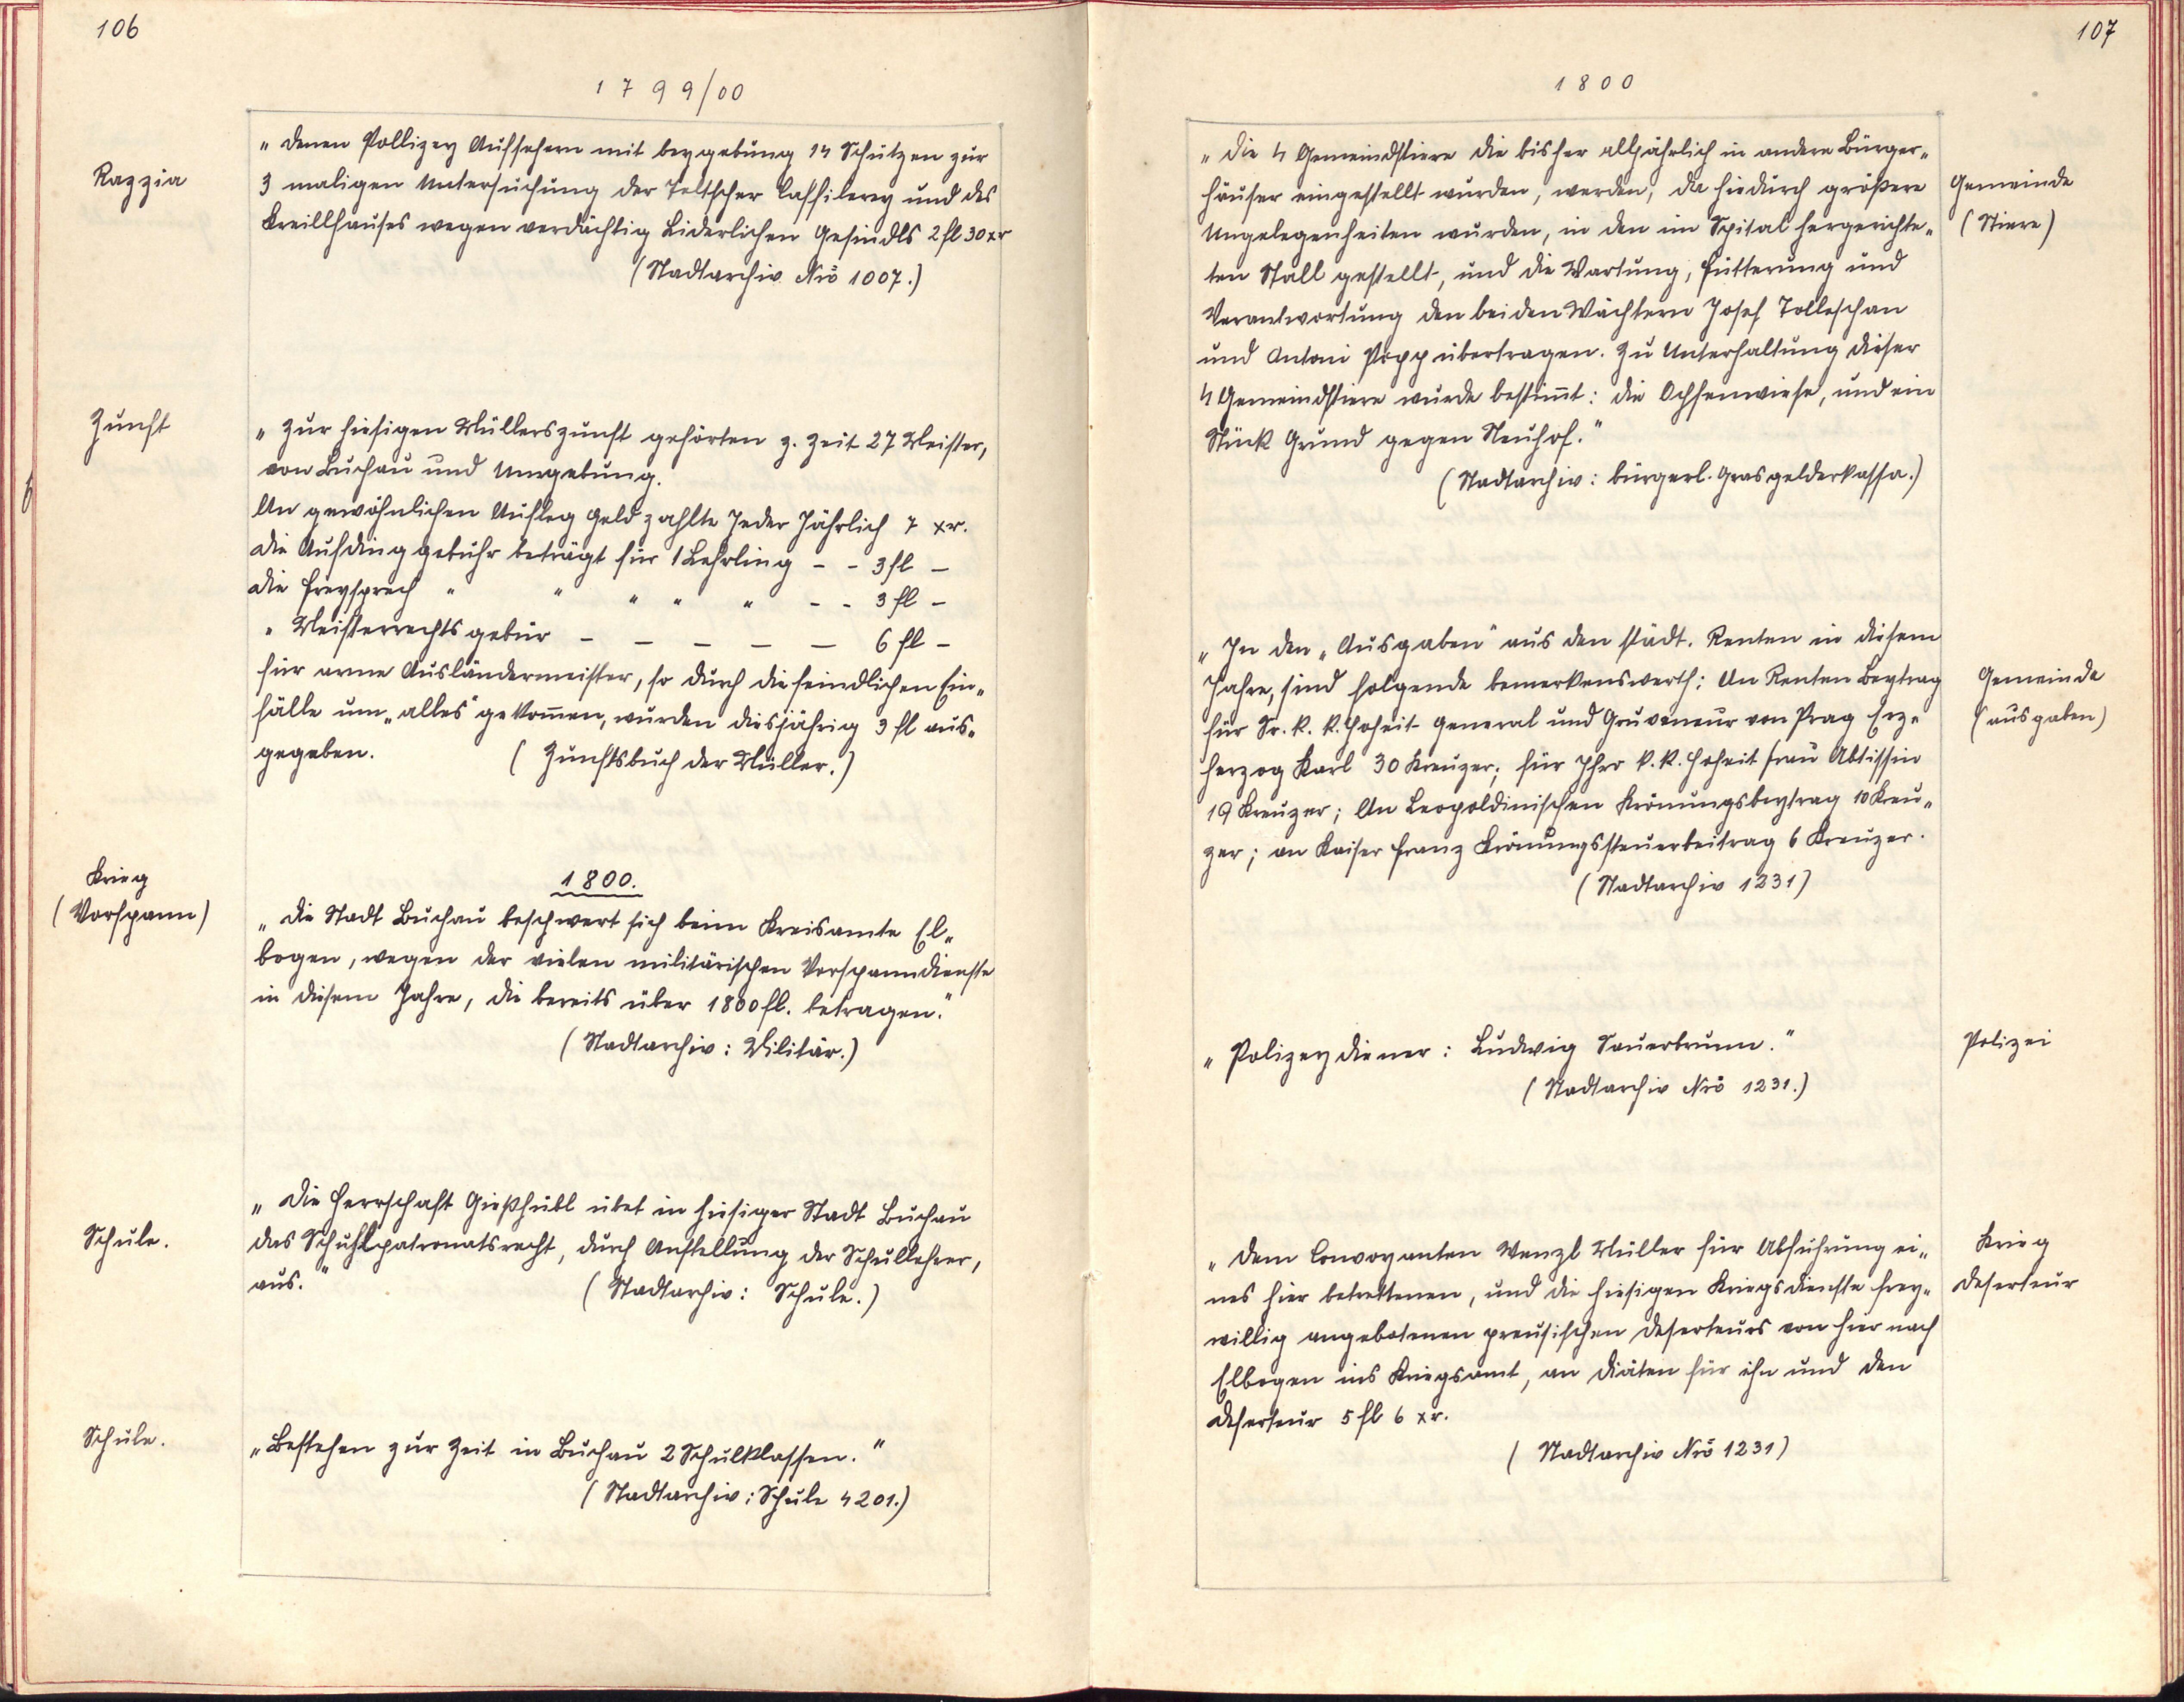 106
1799/00
Razzia
„ denen Pollizey Aufsehern mit beygebung 14 Schützen zur
3 maligen Untersuchung der Teltscher Caffilerey und des
Kreillhauses wegen verdächtig Liderlichen Gesindls 2 fl 30 xr
(Stadtarchiv Nrō 1007.)
Zunft
„ Zur hiesigen Müllerszunft gehörten z. Zeit 27 Meister,
von Buchau und Umgebung.
An gewöhnlichen Aufleg Geld zahlte Jeder Jährlich 7 xr.
die Aufdinggebuhr beträgt für 1 Lehrling - - 3 fl -
die Freysprech " " " " " - - 3 fl -
" Meisterrechts gebür - - - - - 6 fl -
für arme Ausländermeister, so durch die feindlichen Ein„
fälle um „alles“ gekom̄en, wurden diesjährig 3 fl aus„
gegeben. (Zunftsbuch der Müller.)
Krieg
(Vorspann)
1800.
„ die Stadt Buchau beschwert sich beim Kreisamte El„
bogen, wegen der vielen militärischen Vorspanndienste
in diesem Jahre, die bereits über 1800 fl. betragen.“
(Stadtarchiv: Militär.)
Schule.
„ Die Herrschaft Gießhübl übet in hiesiger Stadt Buchau
das Schuhlpatronatsrecht, durch Anstellung der Schullehrer,
aus.“ (Stadtarchiv: Schule.)
Schule.
„Bestehen zur Zeit in Buchau 2 Schulklassen.“
(Stadtarchiv: Schule 4201.)
107
1800
„ die 4 Gemeindstiere die bisher alljährlich in andere Bürger„
häuser eingestellt wurden, werden, da hiedurch größere
Ungelegenheiten wurden, in den im Spital hergerichte„
ten Stall gestellt, und die Wartung, Fütterung und
Verantwortung den beiden Wächtern Josef Tolleschan
und Antoni Popp übertragen. Zu Unterhaltung dieser
4 Gemeindstiere wurde bestim̄t: die Ochsenwiese, und ein
Stück Grund gegen Neuhof.“
(Stadtarchiv: bürgerl. Grasgelderkassa.)
Gemeinde
(Stiere)
„ In den „Ausgaben“ aus den städt. Renten in diesem
Jahre, sind folgende bemerkenswerth: An Renten Beytrag
für Sr. k. k. Hoheit General und Gruveneur von Prag Erz„
herzog Karl 30 Kreuzer; für Ihro k. k. Hoheit Frau Abtissin
19 Kreuzer; An Leopoldinischen Krönungsbeytrag 10 Kreu„
zer; an Kaiser Franz Krönungssteuerbeitrag 6 Kreuzer.
(Stadtarchiv 1231)
Gemeinde
(ausgaben)
„ Polizeydiener: Ludwig Sauerbrunn.“
(Stadtarchiv Nrō 1231.)
Polizei
„ dem Convoyanten Wenzl Müller für Abführung ei„
nes hier betrettenen, und die hiesigen Kriegsdienste frey„
willig angebotenen preusischen Deserteurs von hier nach
Elbogen ins Kriegsamt, an Diäten für ihn und den
Deserteur 5 fl 6 xr.
(Stadtarchiv Nrō 1231)
Krieg
Deserteur